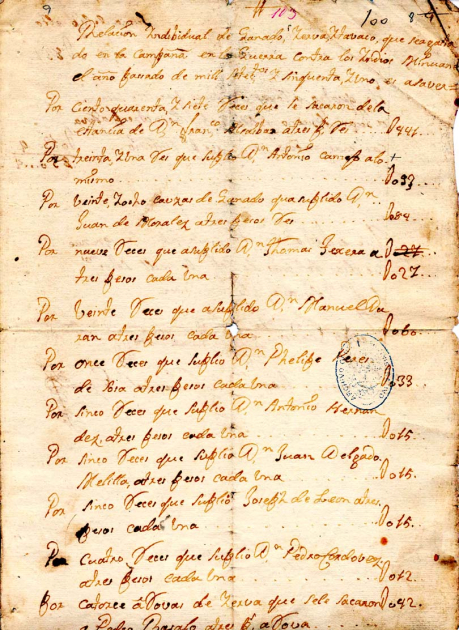 Relacion Indibidual de Ganado, Yerva, Tavaco, que se a gasta
do en la Campaña en la Guerra Contra los Indios Minuan
el año pasado de mil setesos. Y sinquenta y Uno. es a saver =
Por Ciento quarenta, Y siete Reces que se sacaron de la
estancia de Dn. Franco. a tres ps Res Po441.
Por treinta, Y Una Res que suplio Dn. Antonio a lo
mismo Po93...
Por Veinte, Y ocho cavezas de Ganado que a suplido Dn.
Juan de Morales a tres pesos Res Po84...
Por nueve Reces que a suplido Dn. Thomas Texera a Po27
tres pesos cada Una Po27...
Por Veinte Reces que a suplido Dn. Manuel Du
ran a tres pesos cada Una Po60...
Por once Reces que suplio Dn. Phelipe Peres
de Sosa a tres pesos cada Una Po33
Por sinco Reces que suplio Dn. Antonio Hernan
dez, a tres pesos cada Una Po15.
Por sinco Reces que suplio Dn. Juan Delgado
Melilla, a tres pesos cada Una Po15.
Por sinco Reces que suplio Joseph de Leon a tres
pesos cada Una Po15.
Por Cuatro Reces que suplio Dn. Pedro Cordovez
a tres pesos cada Una Po12.
Por Catorce aRovas de Yerva que se le sacaron Po42.
a Pedro a tres ps aRova